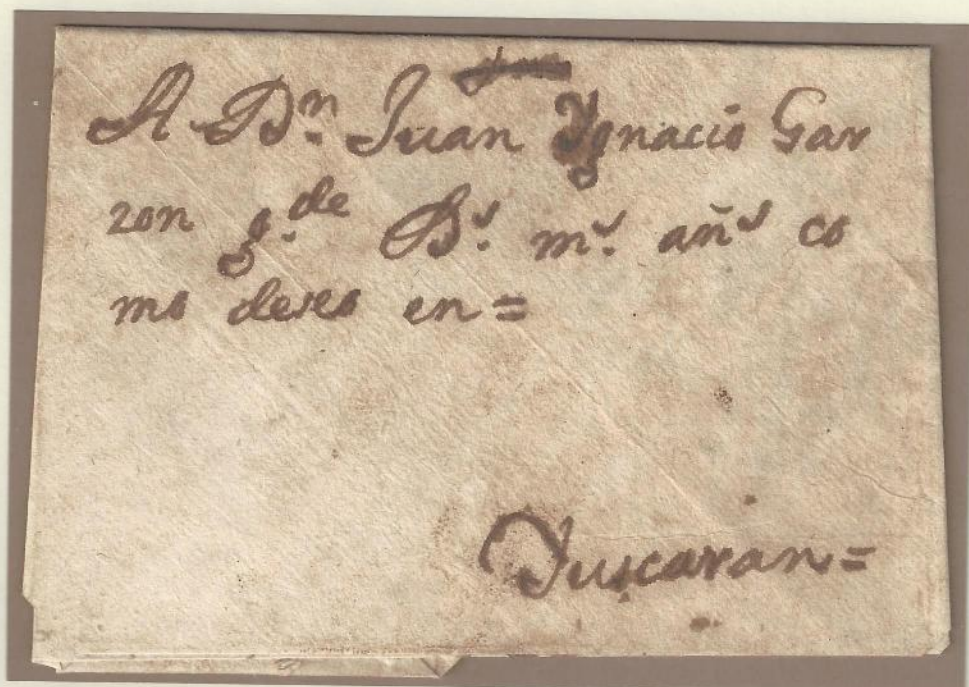 A Dn. Juan Ygnacio Gar
zon g.de Ds. ms. añs co
mo deseo en=
Yuscaran=